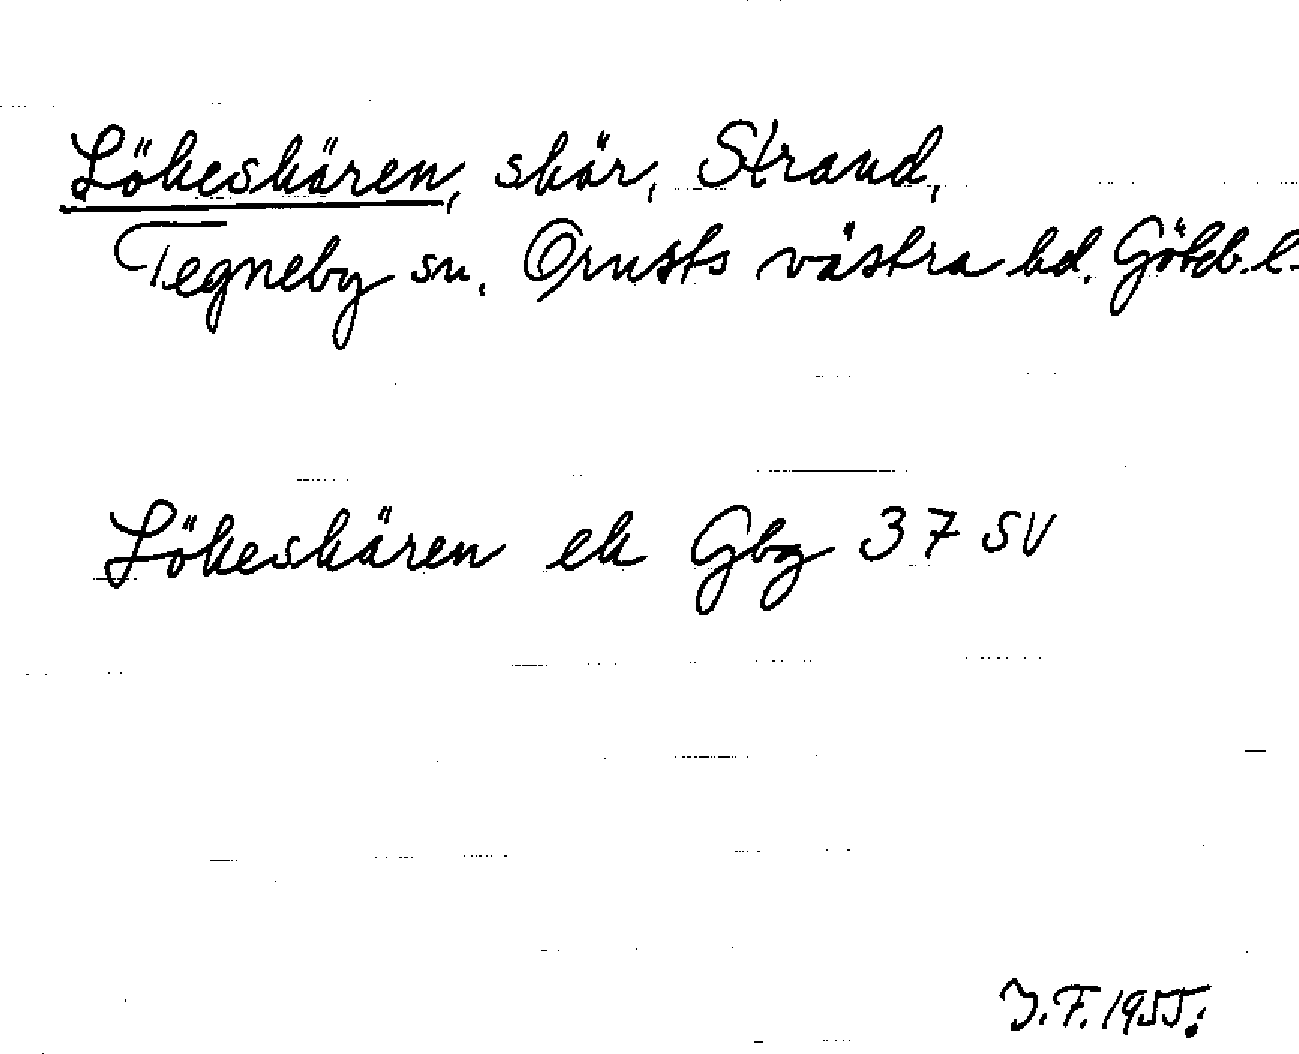 Lökeskären, skär, Strand,
Tegneby sn. Orusts västra hd. Göteb. l.
Lökeskären ek Gbg 37 SV
J.F. 1955.